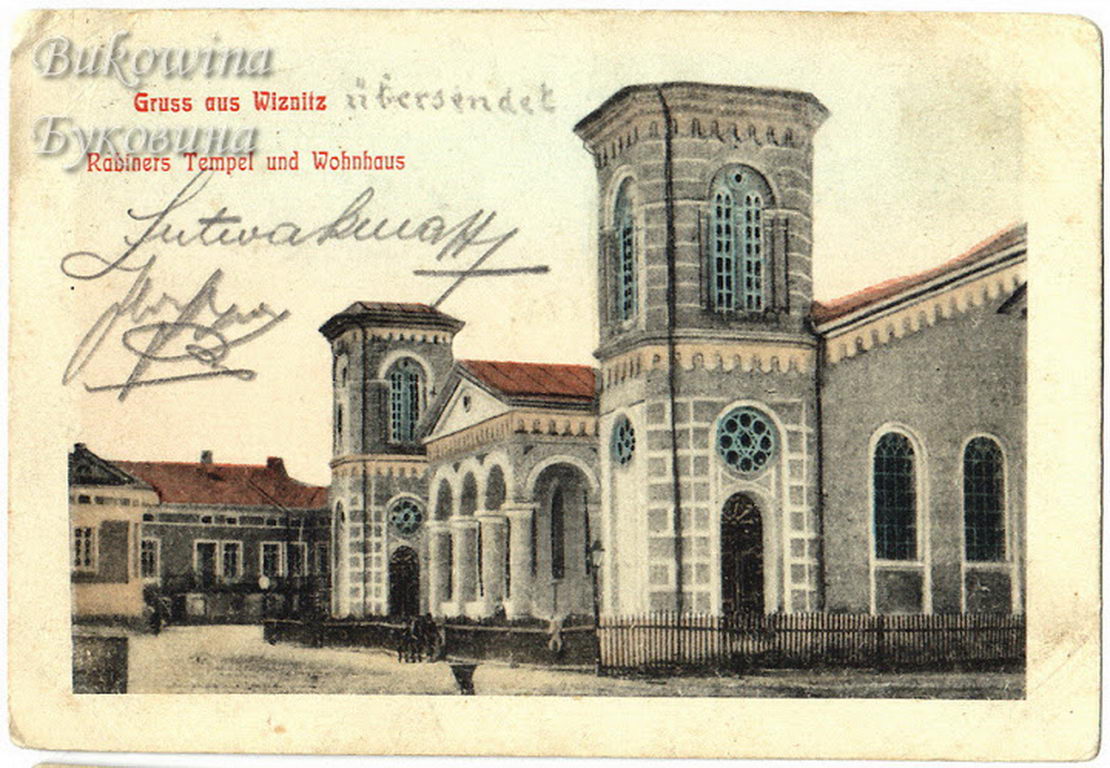 Bukowina
Gruss aus Wiznitz übersendet
Буковина
Rabiners Tempel und Wohnhaus